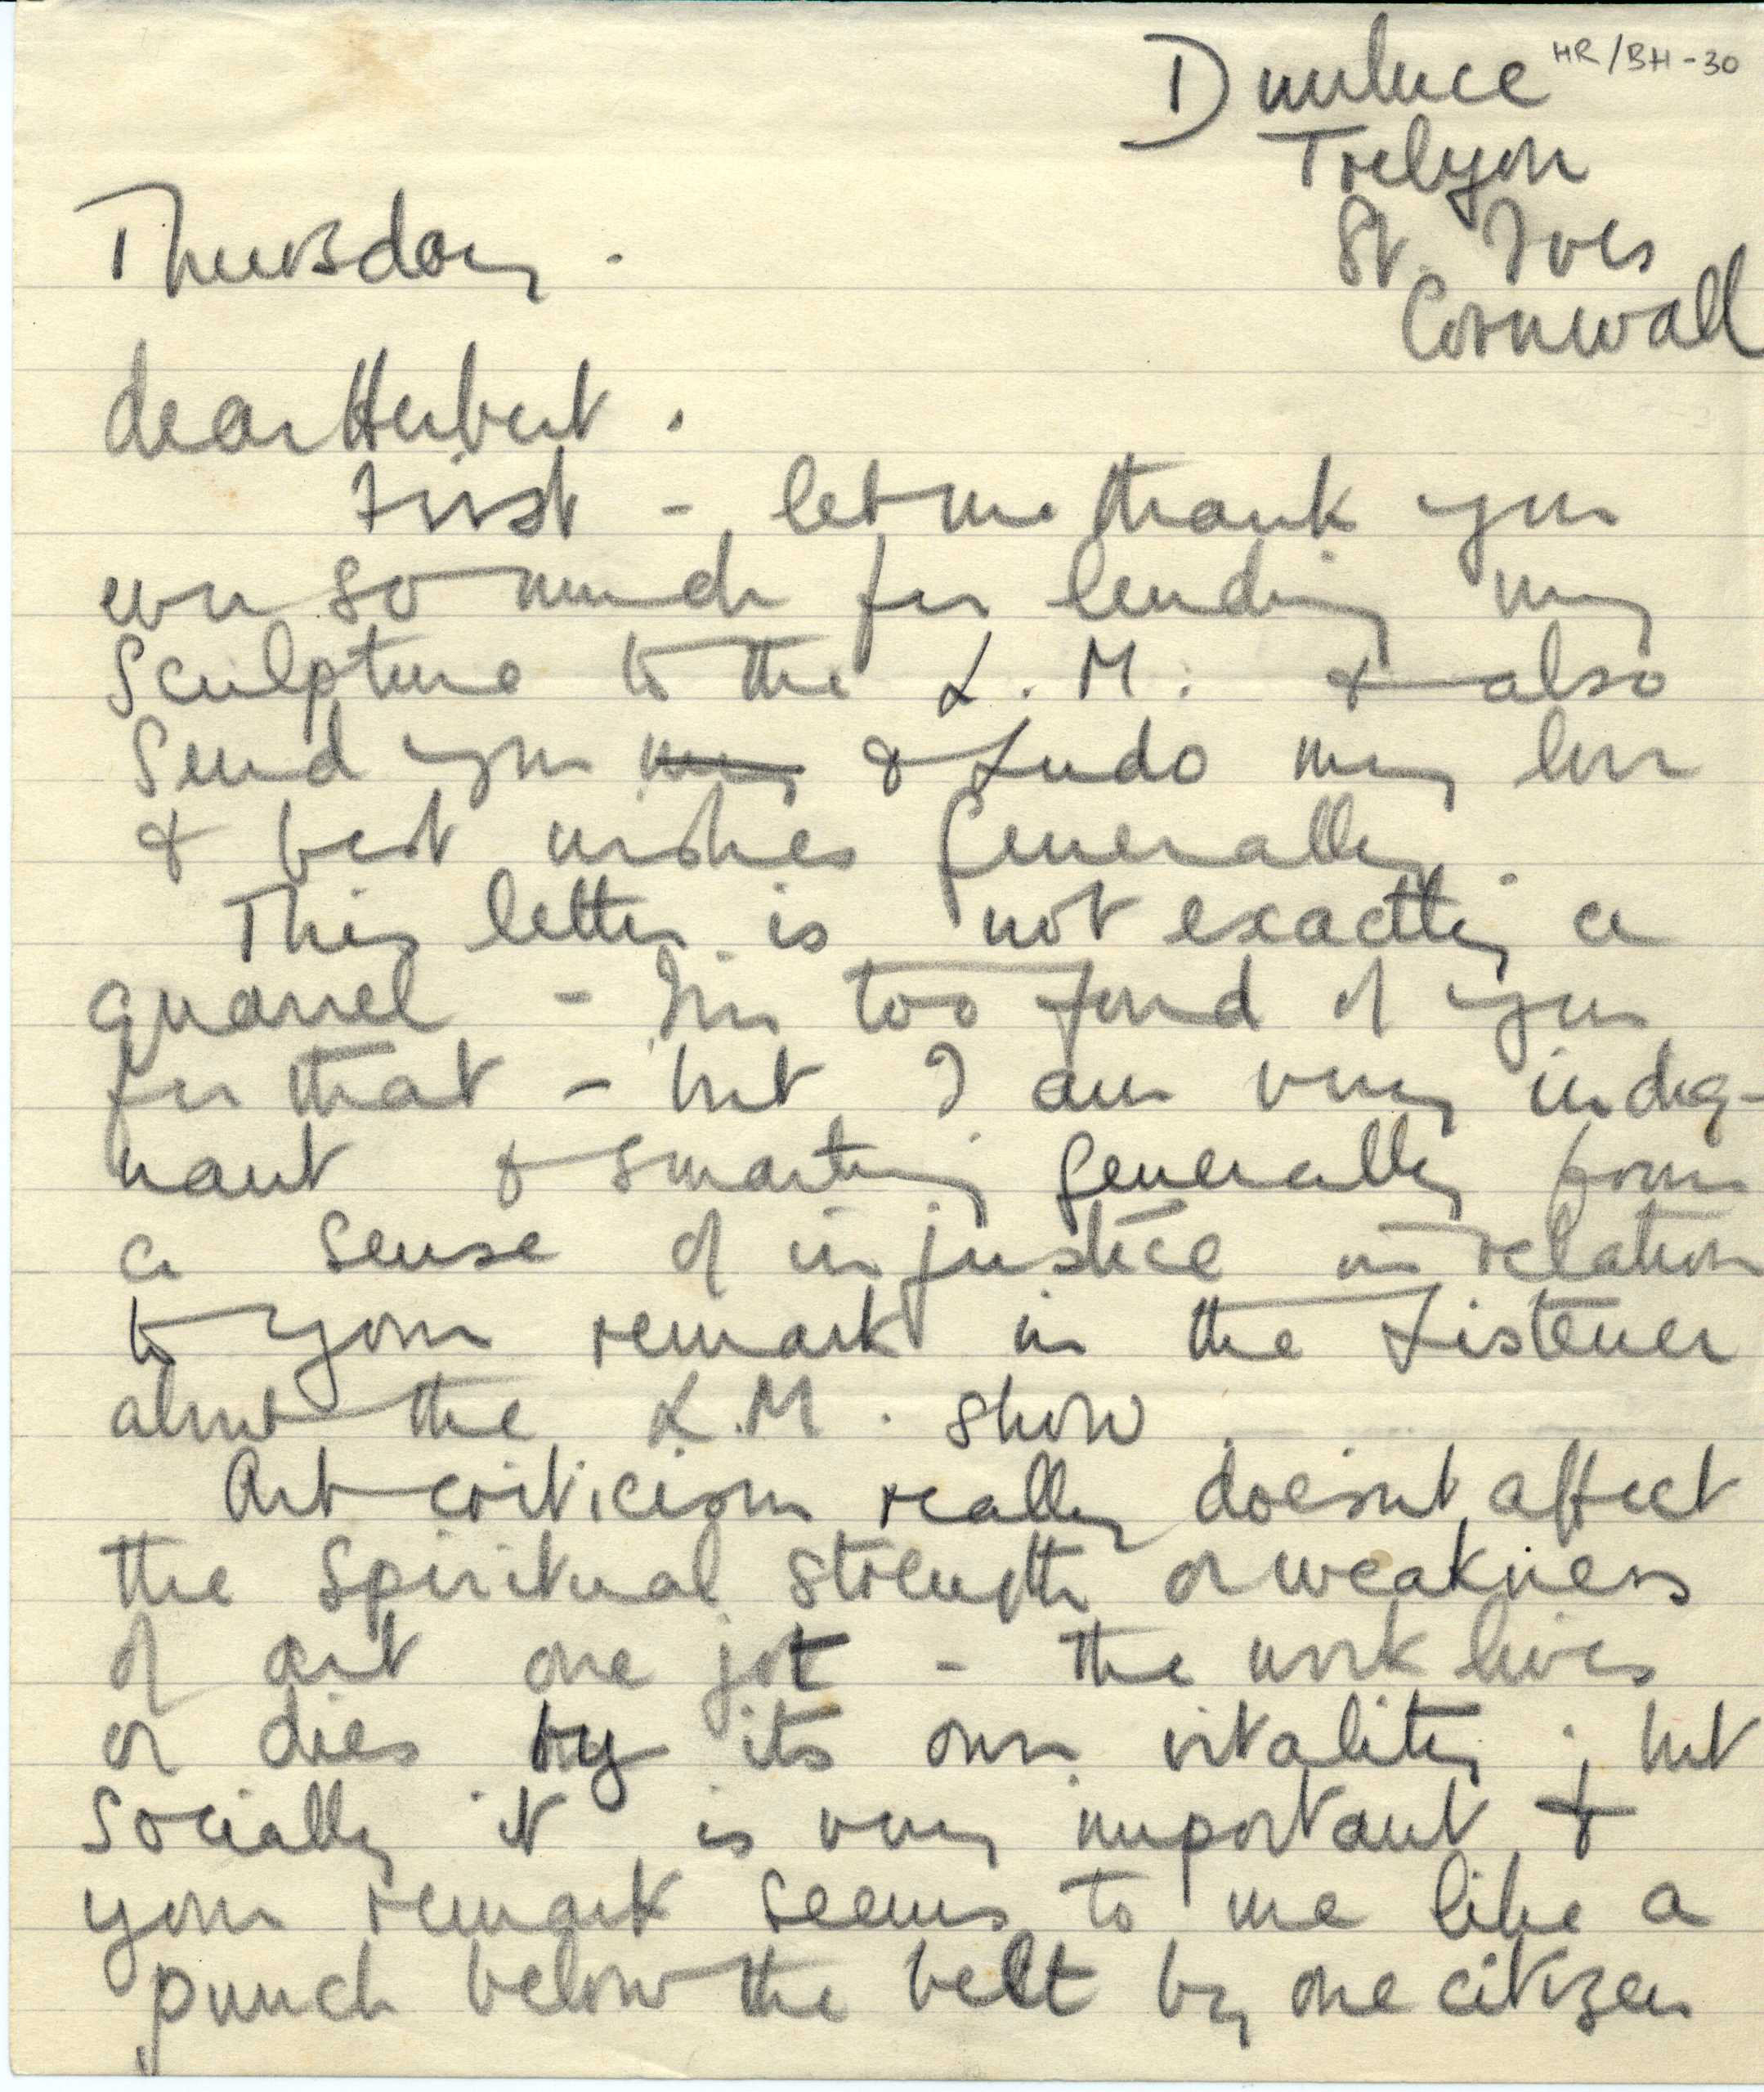 HR/BH-30
Dunluce
Trelyon
St. Ives
Cornwall
Thursday.
dear Herbert.
First - let me thank you
ever so much for lending my
Sculpture to the L.M. & also
Send you my & Ludo my love
& best wishes generally.
This letter is not exactly a
quarrel - I'm too fond of you
for that - but I am very indig-
nant & smarting generally from
a sense of injustice in relation
to your remark in the Listener
about the L.M. show.
Art criticism really doesn't affect
the Spiritual strength or weakness
of art one jot - the work lives
or dies by its own vitality; but
Socially it is very important &
your remark seems to me like a
punch below the belt by one citizen